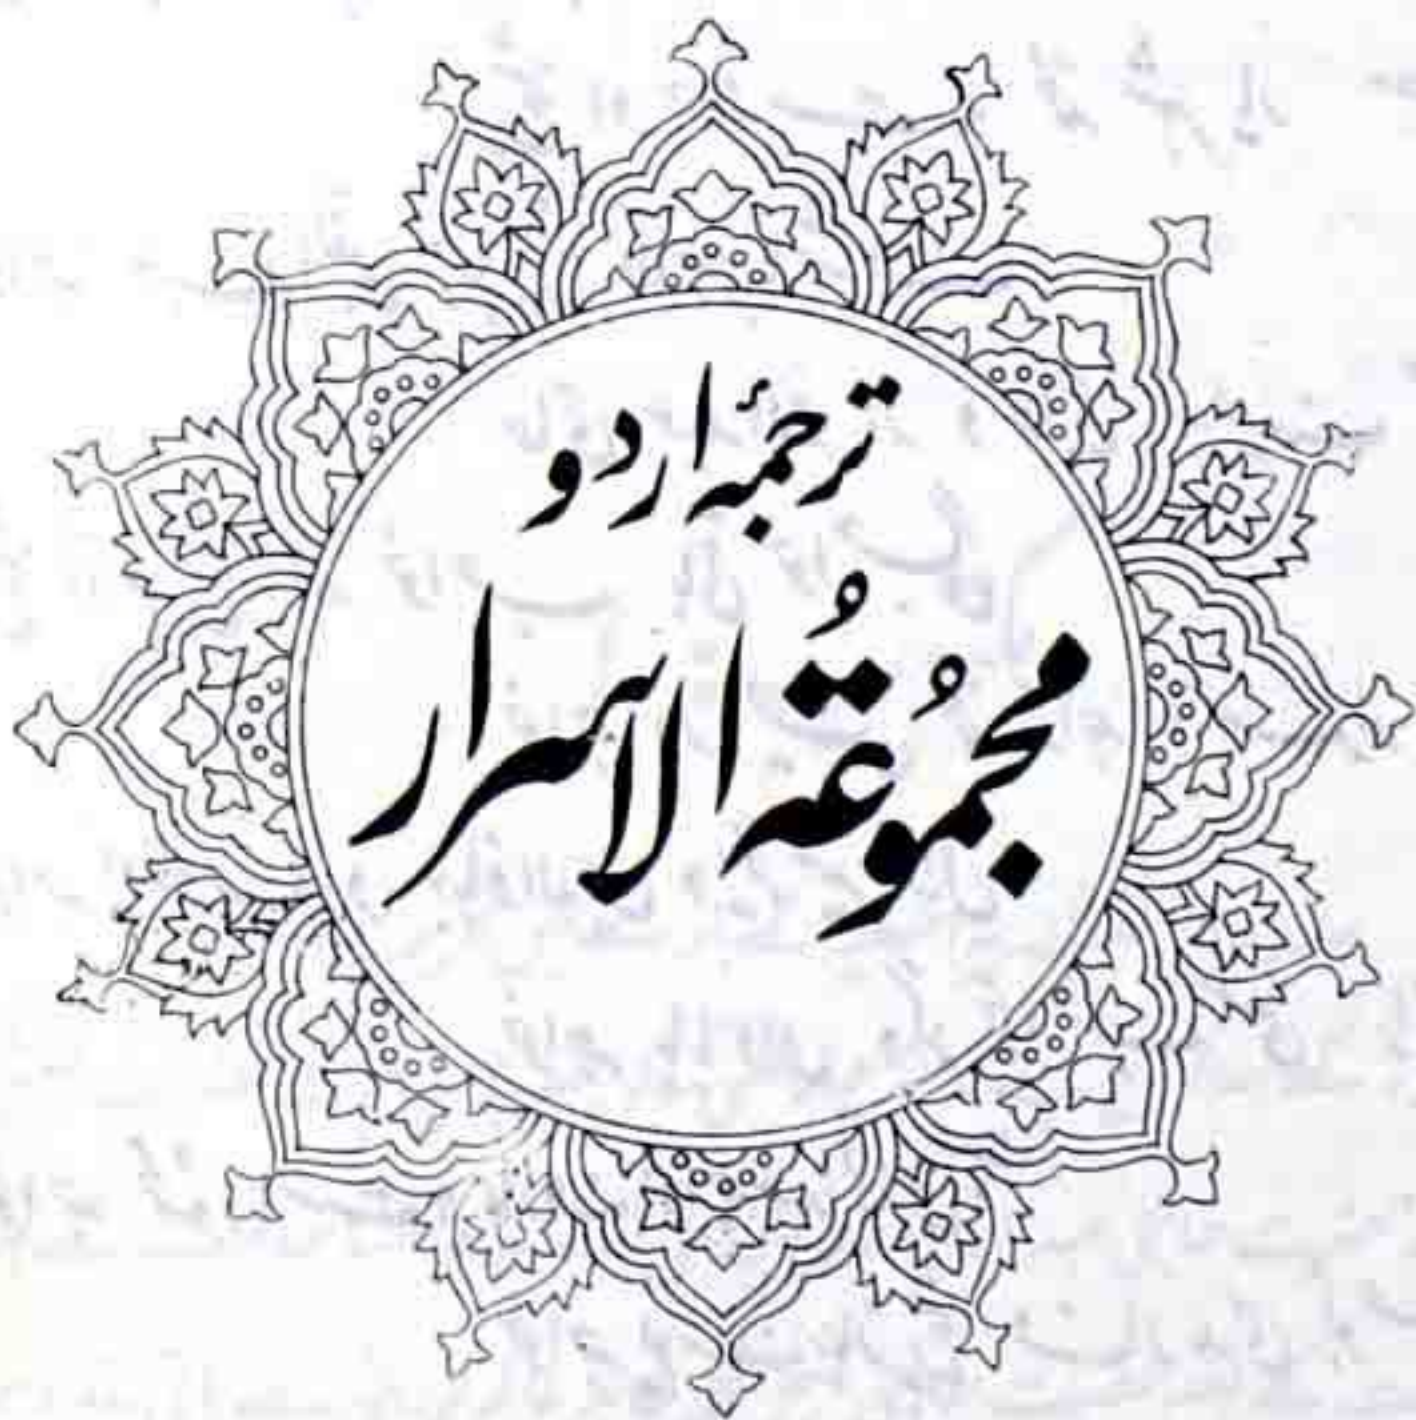 ترجمۂ اردو
مجمُوعُۃُ الاسرار